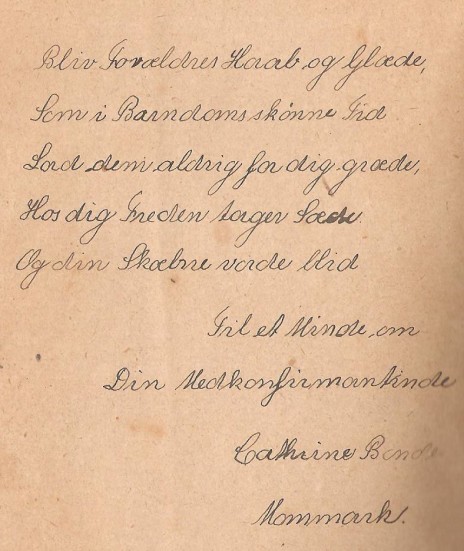 Bliv Forældres Haab og Glæde,
Som i Barndoms skønne Tid
Lad dem aldrig for dig græde,
Hos dig Freden tager Sæde.
Og din Skæbne vorde blid
Til et Minde om
Din Medkonfirmantinde
Cathrine Bonde
Mommark.